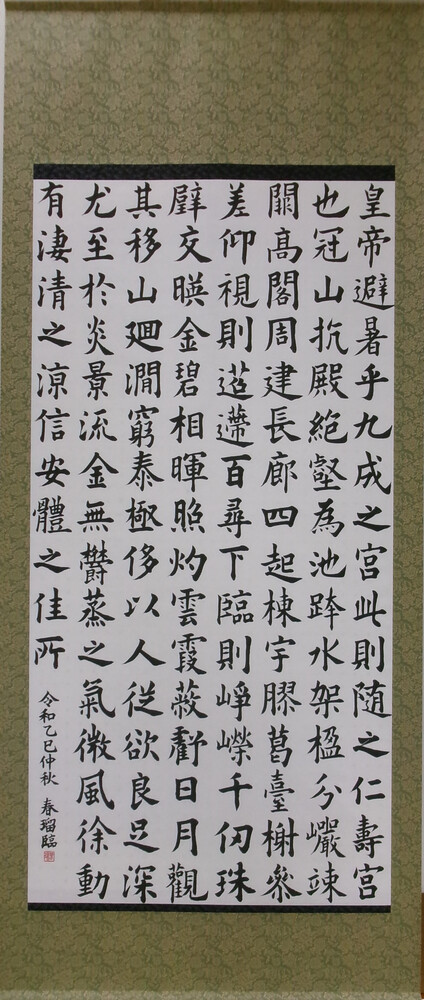 皇帝避暑乎九成之宮此則随之仁壽宮
也冠山抗殿絶壑為池跨水架楹分巗竦
闕高閣周建長廊四起棟宇膠葛臺榭參
差仰視則迢遰百尋下臨則崢嶸千仞珠
璧交暎金碧相暉照灼雲霞蔽虧日月觀
其移山廻澗窮泰極侈以人従欲良足深
尤至於炎景流金無欝蒸之氣微風徐動
有淒清之涼信安體之佳所
令和乙巳仲秋 春瑠臨